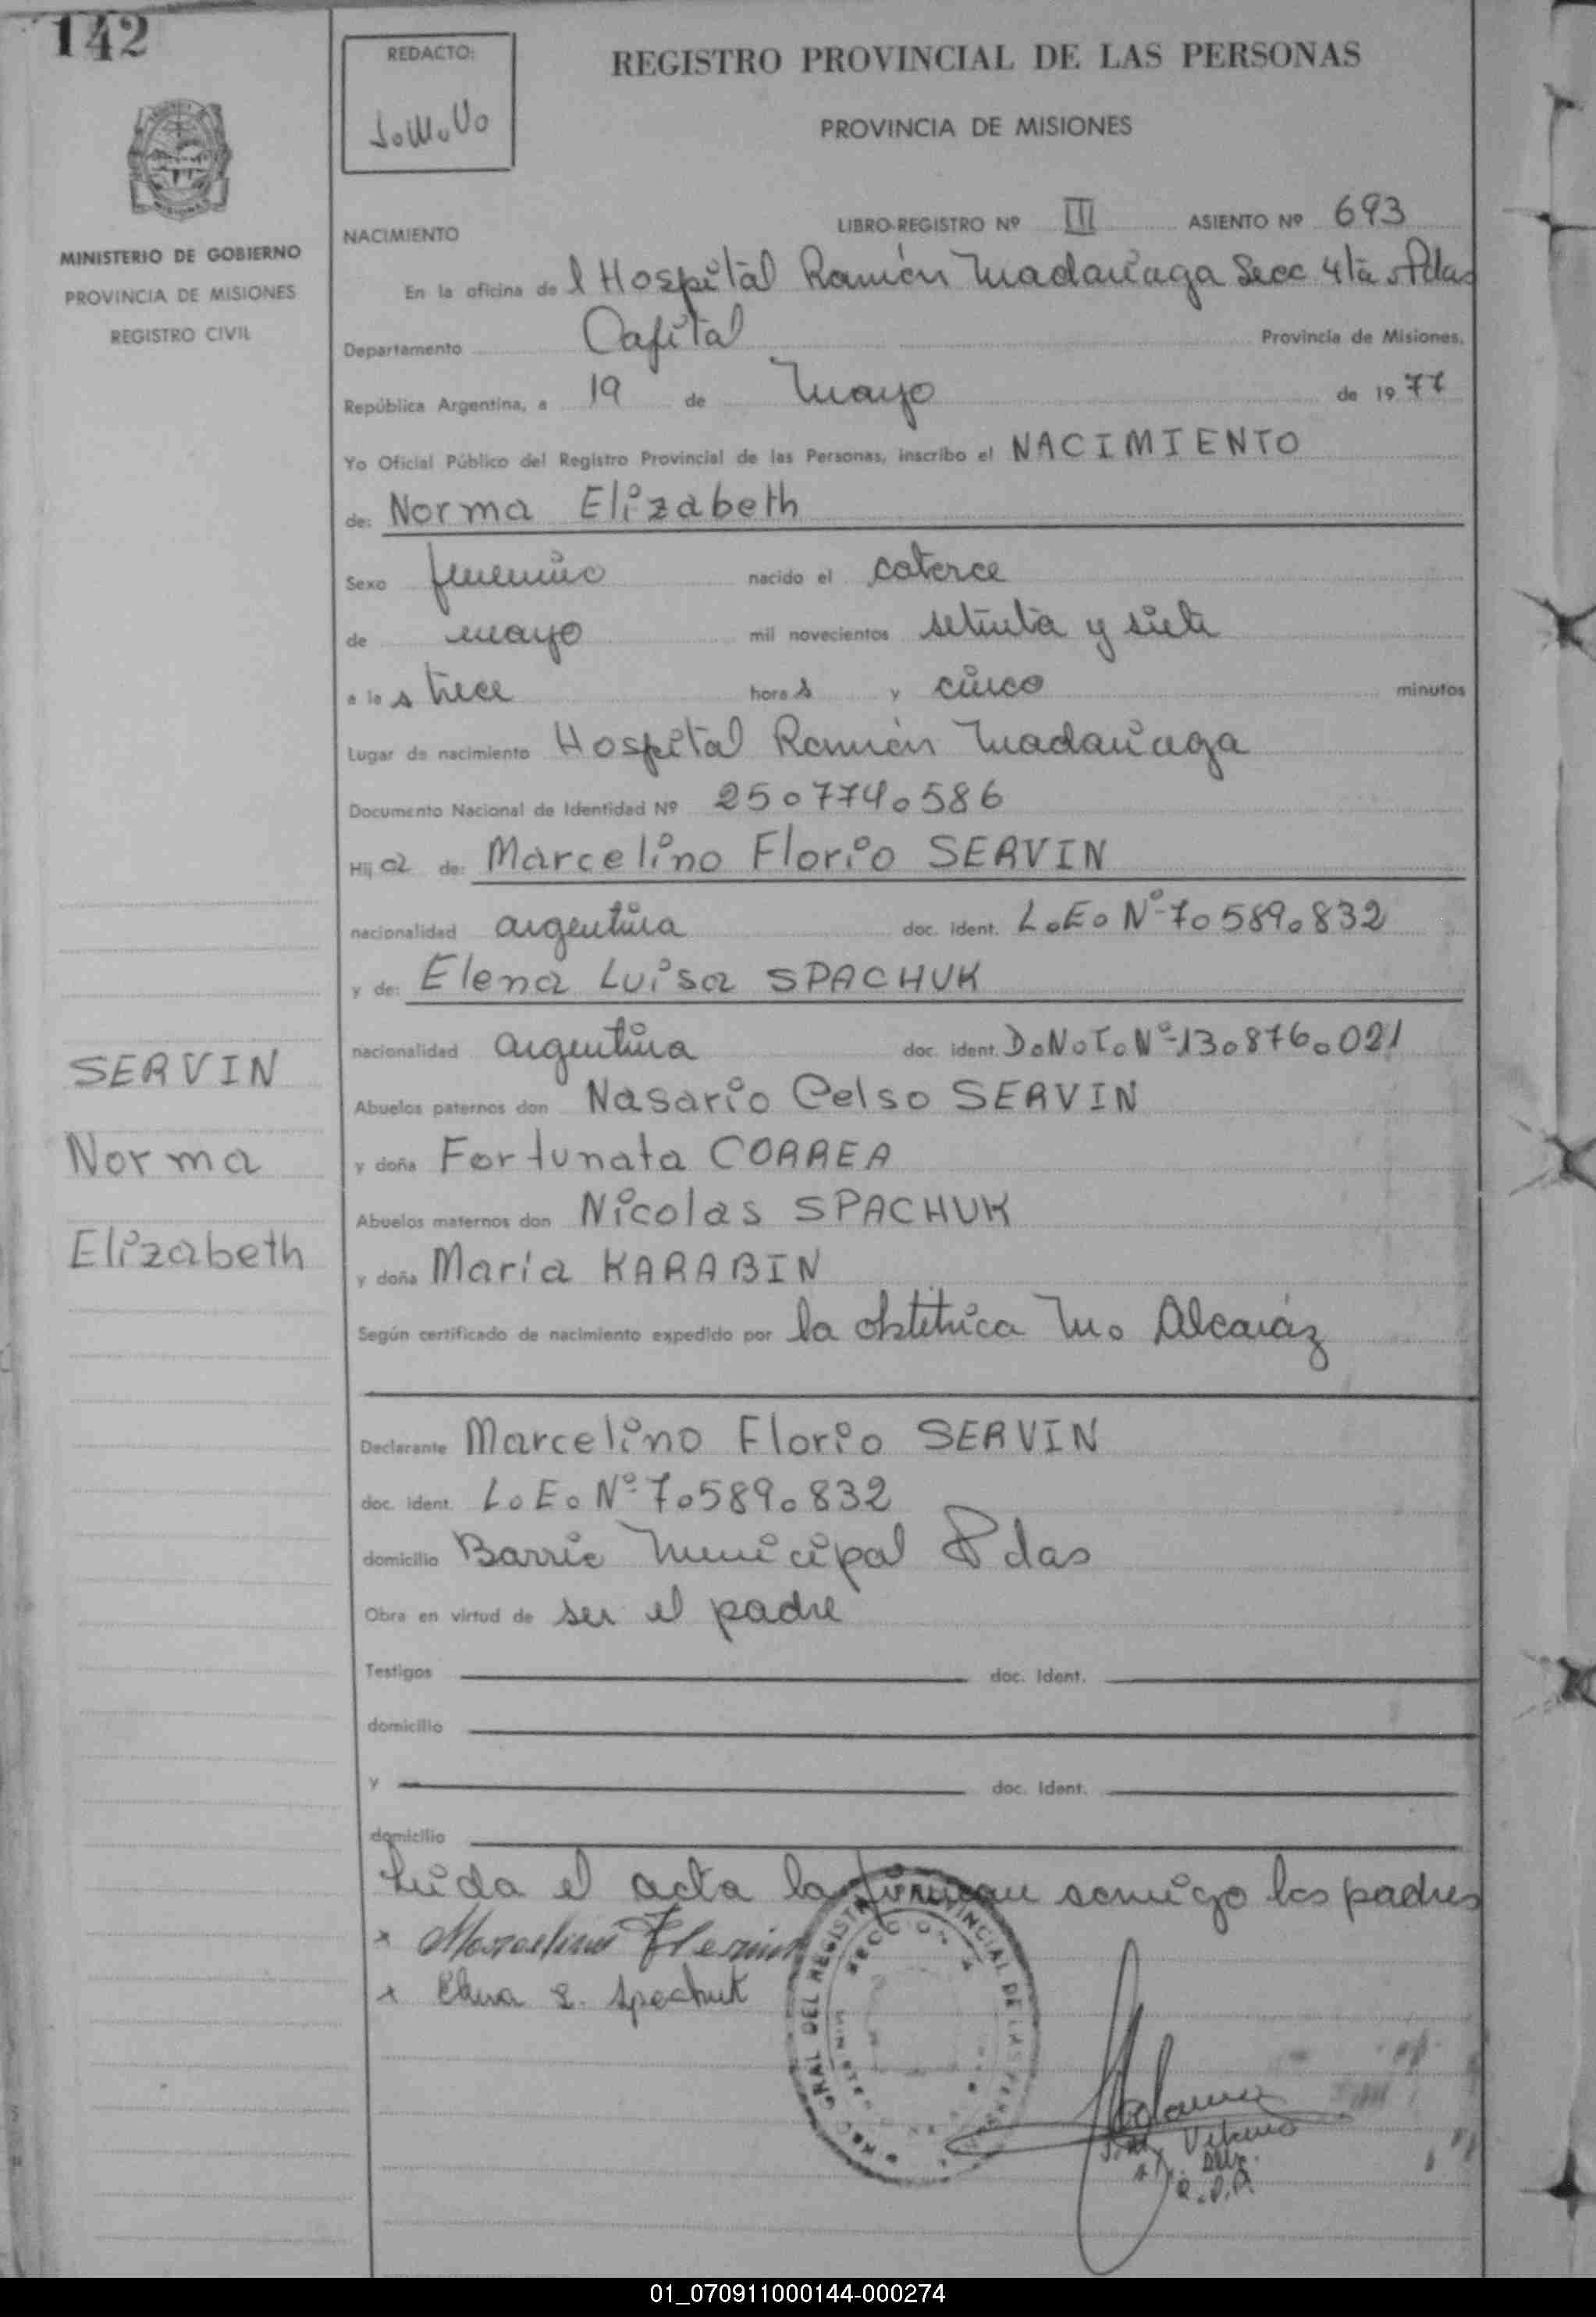 142
REDACTO:
J.M.V.
REGISTRO PROVINCIAL DE LAS PERSONAS
PROVINCIA DE MISIONES
MINISTERIO DE GOBIERNO
PROVINCIA DE MISIONES
REGISTRO CIVIL
NACIMIENTO LIBRO-REGISTRO Nº III ASIENTO Nº 693
En la oficina del Hospital Ramón Madariaga Secc 4ta Pdas
Departamento Capital Provincia de Misiones.
República Argentina, a 19 de Mayo de 1977
Yo Oficial Público del Registro Provincial de las Personas, inscribo el NACIMIENTO
de: Norma Elizabeth
Sexo femenino nacido el catorce
de mayo mil novecientos setenta y siete
a las trece horas y cinco minutos
Lugar de nacimiento Hospital Ramón Madariaga
Documento Nacional de Identidad Nº 25.774.586
Hija de: Marcelino Florio SERVIN
nacionalidad argentina doc. ident. L.E. Nº 7.589.832
y de: Elena Luisa SPACHUK
nacionalidad argentina doc. ident. D.N.I. Nº 13.876.021
Abuelos paternos don Nasario Celso SERVIN
y doña Fortunata CORREA
Abuelos maternos don Nicolas SPACHUK
y doña María KARABIN
Según certificado de nacimiento expedido por la obstétrica M. Alcaráz
SERVIN
Norma
Elizabeth
Declarante Marcelino Florio SERVIN
doc. ident. L.E. Nº 7.589.832
domicilio Barrio Municipal Pdas
Obra en virtud de ser el padre
Testigos doc. Ident.
domicilio
y doc. Ident.
domicilio
Leida el acta la firman conmigo los padres
x Marcelino F Servin
x Elena L. Spachuk
GRAL DEL REGISTRO PROVINCIAL DE LAS PERSONAS
SECCION 4
01_070911000144-000274